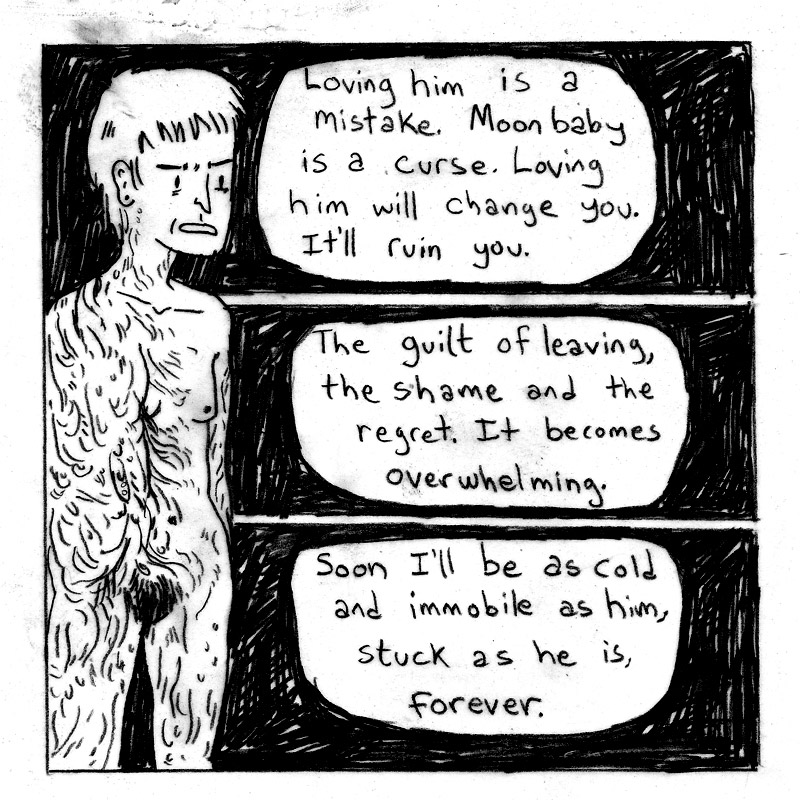 Loving him is a
mistake. Moon baby
is a curse. Loving
him will change you.
It'll ruin you.
The guilt of leaving,
the shame and the
regret. It becomes
overwhelming.
Soon I'll be as cold
and immobile as him,
stuck as he is,
forever.